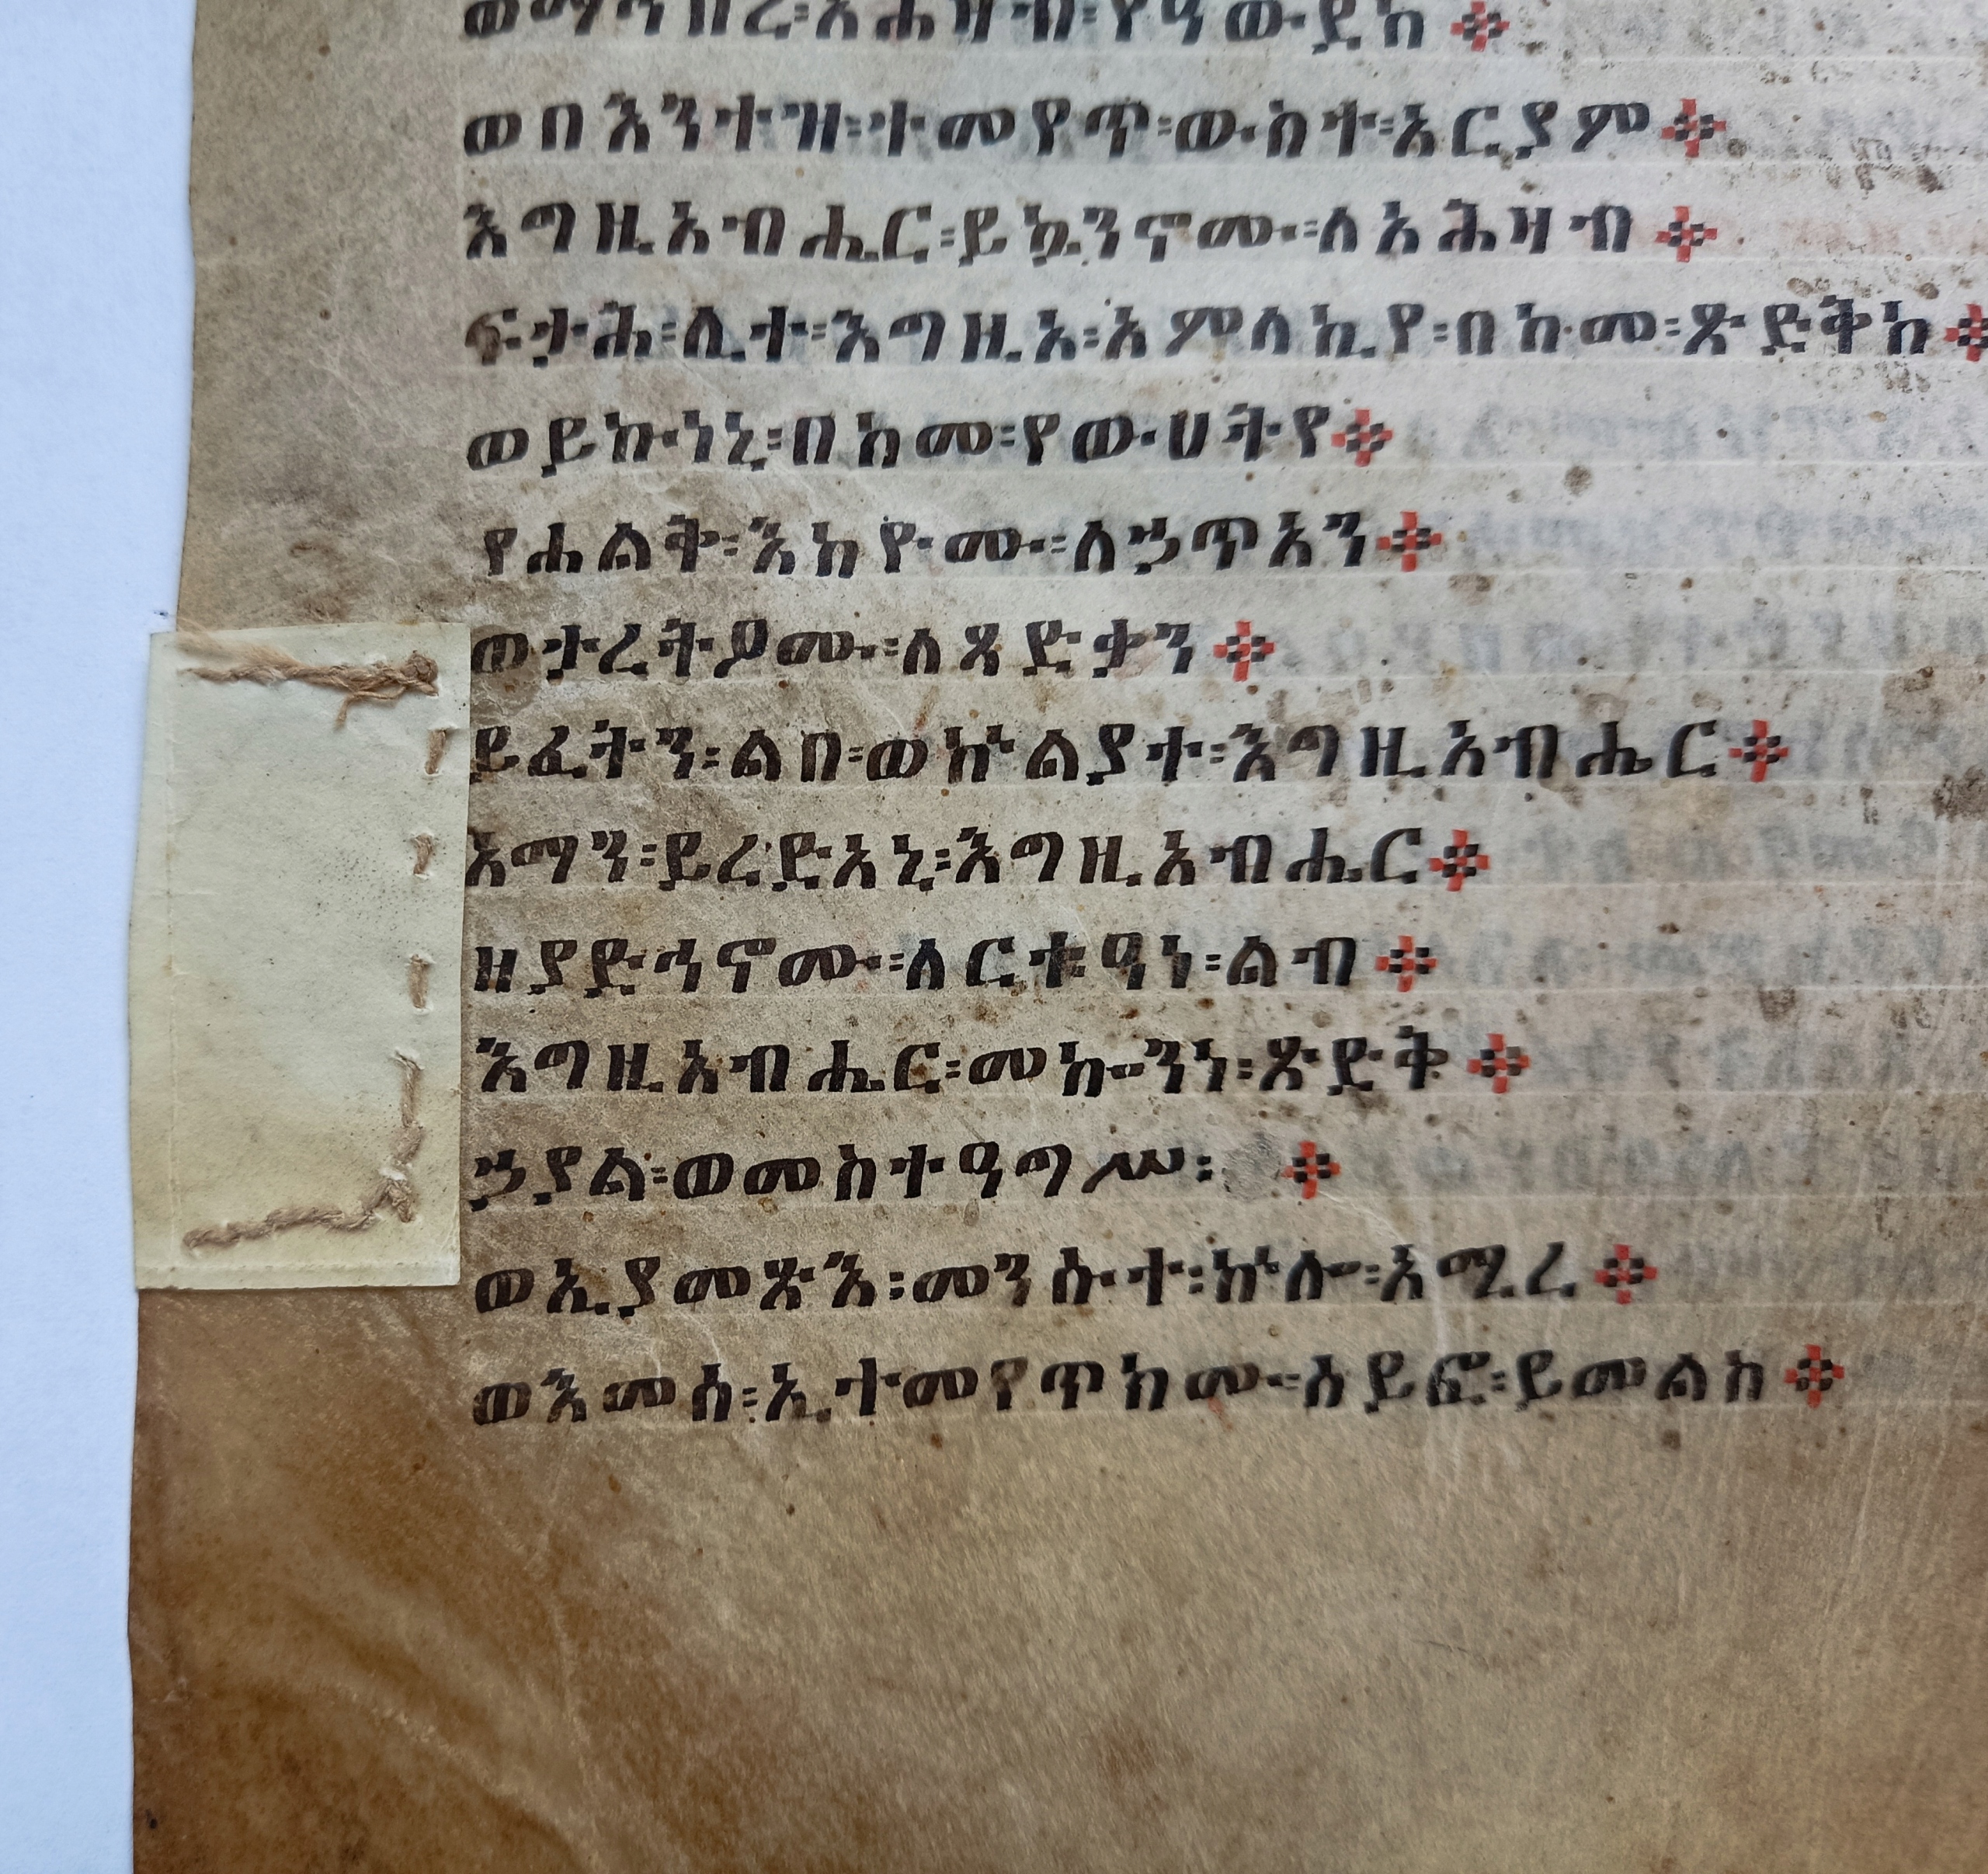 ወማኅበረ፡አሕዛብ፡የዓውደከ ፨
ወበእንተዝ፡ተመየጥ፡ውስተ፡አርያም ፨
እግዚአብሔር፡ይኴንኖሙ፡ለአሕዛብ ፨
ፍታሕ፡ሊተ፡እግዚአ፡አምላኪየ፡በከመ፡ጽድቅከ ፨
ወይኩነኒ፡በከመ፡የውሀትየ ፨
የሐልቅ፡እከዮሙ፡ለኃጥአን ፨
ወታረትዖሙ፡ለጻድቃን ፨
ይፈትን፡ልበ፡ወኵልያተ፡እግዚአብሔር ፨
አማን፡ይረድአኒ፡እግዚአብሔር ፨
ዘያድኅኖሙ፡ለርቱዓነ፡ልብ ፨
እግዚአብሔር፡መኰንነ፡ጽድቅ ፨
ኃያል፡ወመስተዓግሥ፡ ፨
ወኢያመጽእ፡መንሱተ፡ኵሎ፡አሚረ ፨
ወእመሰ፡ኢተመየጥክሙ፡ሰይፎ፡ይመልከ ፨